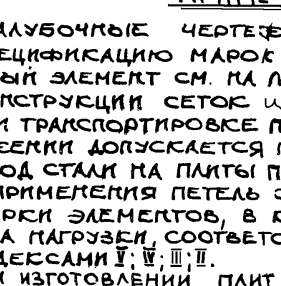 АЛУБОЧНЫЕ ЧЕРТЕЖ
ЕЦИФИКАЦИЮ МАРОК
ЫЙ ЭЛЕМЕНТ СМ. НА Л
НСТРУКЦИИ СЕТОК И
И ТРАНСПОРТИРОВКЕ П
ЕЕНИИ ДОПУСКАЕТСЯ
ОД СТАЛИ НА ПЛИТЫ П
ПРИМЕНЕНИЯ ПЕТЕЛЬ
РКИ ЭЛЕМЕНТОВ, В К
А НАГРУЗКИ, СООТВЕТС
ДЕКСАМИ V; IV; III; II.
И ИЗГОТОВЛЕНИИ ПЛИТ